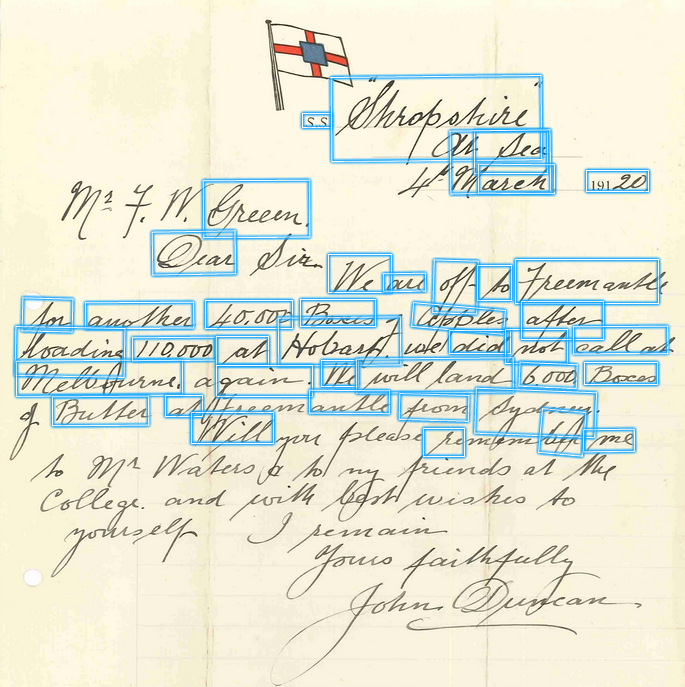 S.S. "Shropshire"
At Sea
4th March 191 20
Mr F. W. Greeen.
Dear Sir.
We are off to Freemantle
for another 40,000 Boxes of Apples after
loading 110,000 at Hobart. we did not call at
Melbourne. again. We will land 6,000 Boxes
of Butter at Freemantle from Sydney.
Will you please remember me
to Mr Waters & to my friends at the
College. and with best wishes to
yourself I remain
Yours faithfully
John Duncan